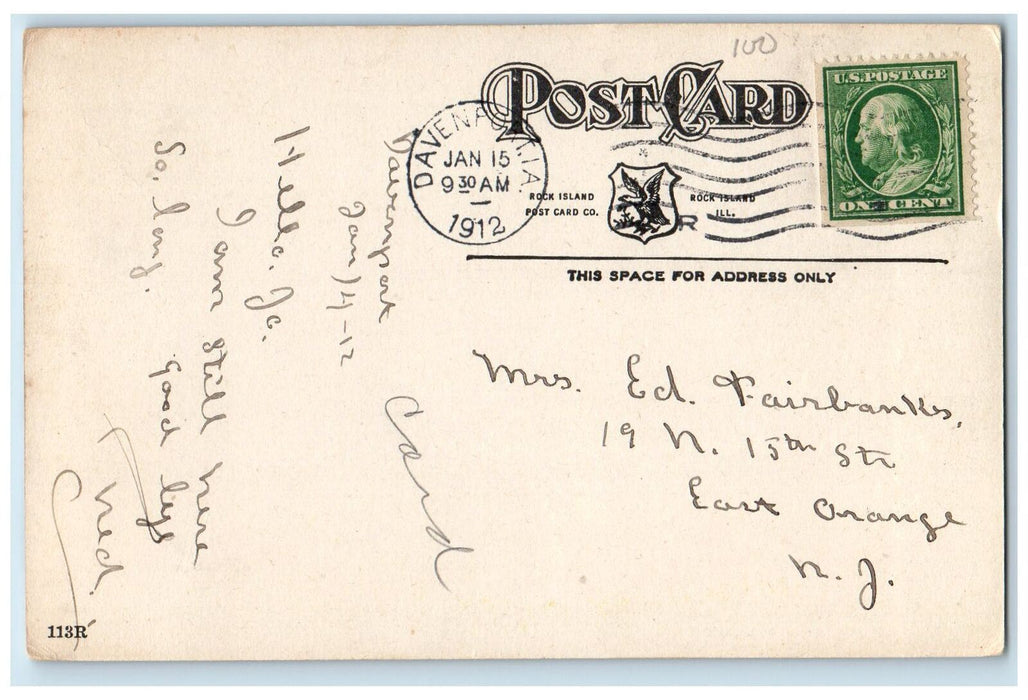 100
POST CARD
U.S. POSTAGE
ONE CENT
DAVENPORT, IA.
JAN 15
9 30 AM
1912
ROCK ISLAND
POST CARD CO.
ROCK ISLAND
ILL.
R
THIS SPACE FOR ADDRESS ONLY
Davenport
Jan 14-12
Card
Hello. Jo.
I am still here
So, long.
good bye
Ned.
Mrs. Ed. Fairbanks,
19 N. 15th Str
East Orange
N. J.
113R